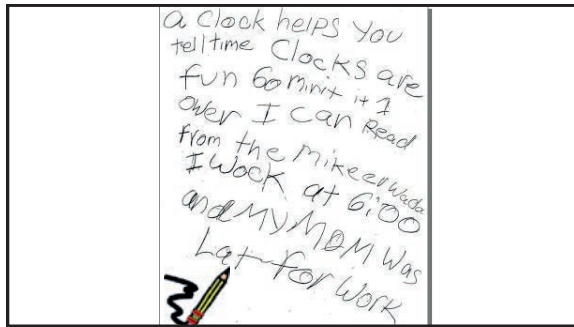 a Clock helps You
tell time Clocks are
fun 60 minit it 1
ower I can Read
from the mikeerwada
I wock at 6:00
and MY MOM Was
Lat for Work